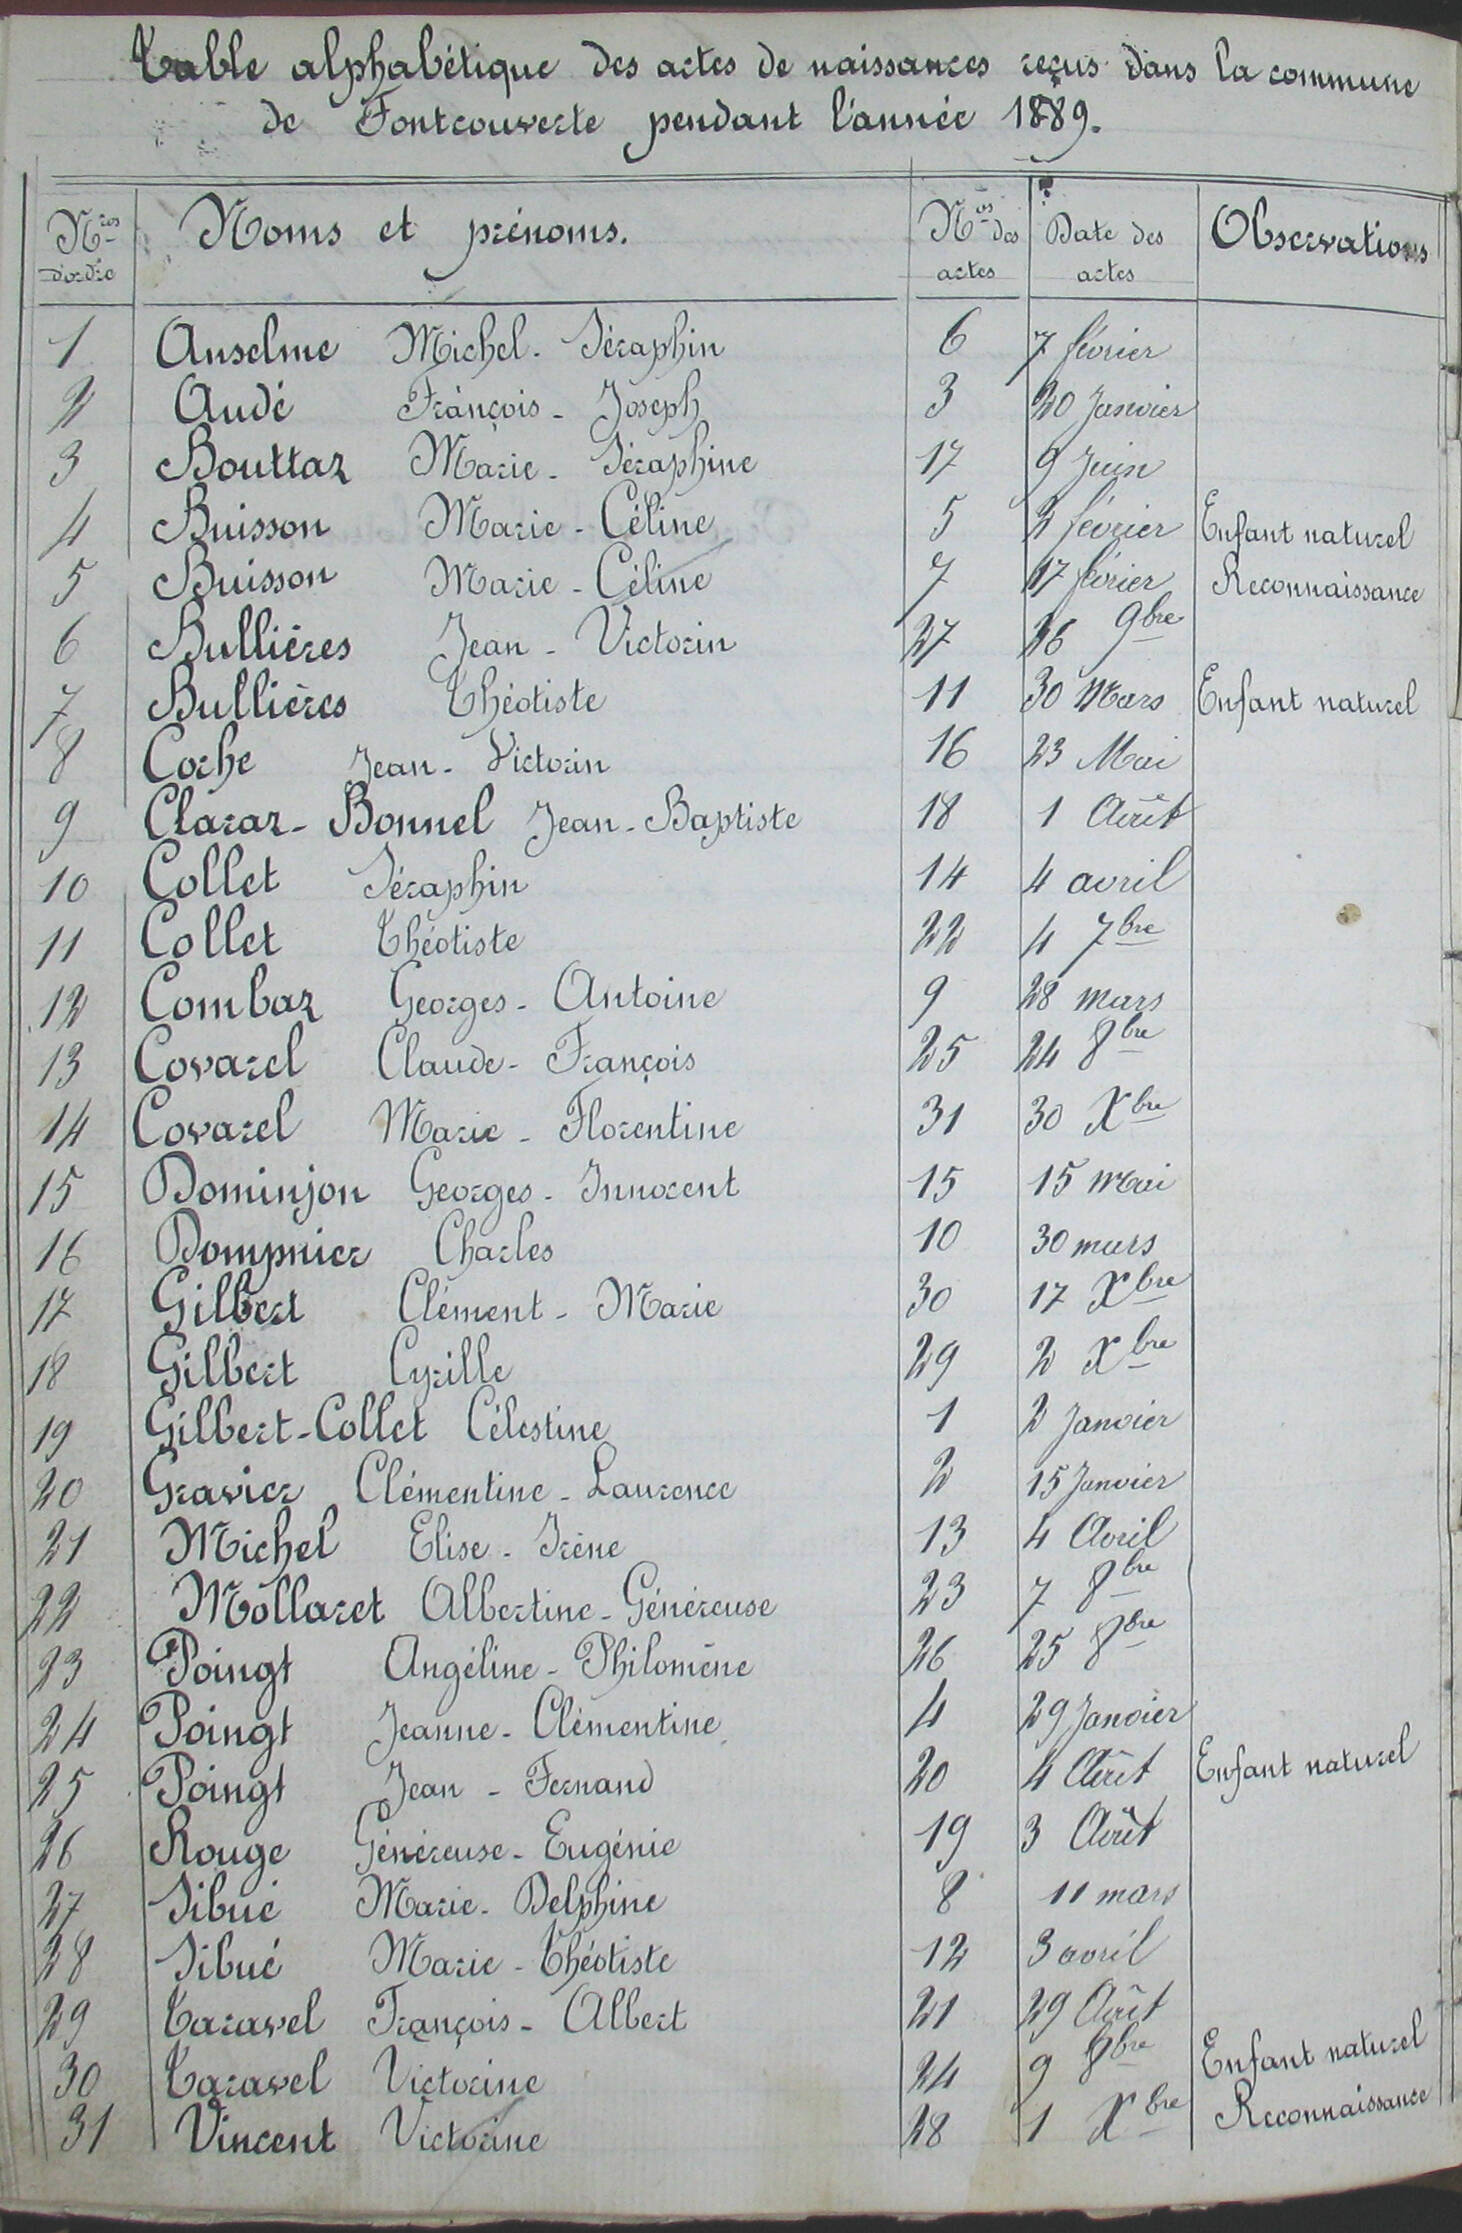 Table alphabétique des actes de naissances reçus dans la commune
de Fontcouverte pendant l'année 1889.
Nros d'ordre Noms et prénoms. Nos des actes Date des actes Observations
1 Anselme Michel-Séraphin 6 7 février
2 Audé François-Joseph 3 20 Janvier
3 Bouttaz Marie-Séraphine 17 9 Juin
4 Buisson Marie-Céline 5 2 février Enfant naturel
5 Buisson Marie-Céline 7 17 février Reconnaissance
6 Bullières Jean-Victorin 27 26 9bre
7 Bullières Théotiste 11 30 Mars Enfant naturel
8 Coche Jean-Victorin 16 23 Mai
9 Claraz-Bonnel Jean-Baptiste 18 1 Août
10 Collet Séraphin 14 4 avril
11 Collet Théotiste 22 4 7bre
12 Combaz Georges-Antoine 9 28 mars
13 Covarel Claude-François 25 24 8bre
14 Covarel Marie-Florentine 31 30 Xbre
15 Dominjon Georges-Innocent 15 15 Mai
16 Dompnier Charles 10 30 mars
17 Gilbert Clément-Marie 30 17 Xbre
18 Gilbert Cyrille 29 2 Xbre
19 Gilbert-Collet Célestine 1 2 Janvier
20 Gravier Clémentine-Laurence 2 15 Janvier
21 Michel Elise-Irène 13 4 Avril
22 Mollaret Albertine-Généreuse 23 7 8bre
23 Poingt Angéline-Philomène 26 25 8bre
24 Poingt Jeanne-Clémentine 4 29 Janvier
25 Poingt Jean-Fernand 20 4 Août Enfant naturel
26 Rouge Généreuse-Eugénie 19 3 Août
27 Sibué Marie-Delphine 8 11 mars
28 Sibué Marie-Théotiste 12 3 avril
29 Taravel François-Albert 21 29 Août
30 Taravel Victorine 24 9 8bre Enfant naturel
31 Vincent Victorine 28 1 Xbre Reconnaissance